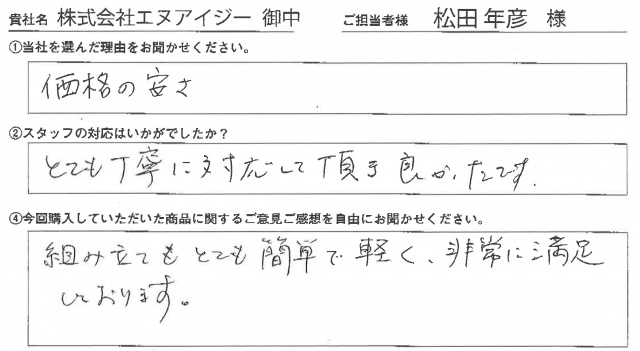 貴社名 株式会社エヌアイジー 御中 ご担当者様 松田 年彦 様
①当社を選んだ理由をお聞かせください。
価格の安さ
②スタッフの対応はいかがでしたか？
とても丁寧に対応して頂き良かったです。
④今回購入していただいた商品に関するご意見ご感想を自由にお聞かせください。
組み立てもとても簡単で軽く、非常に満足
しております。